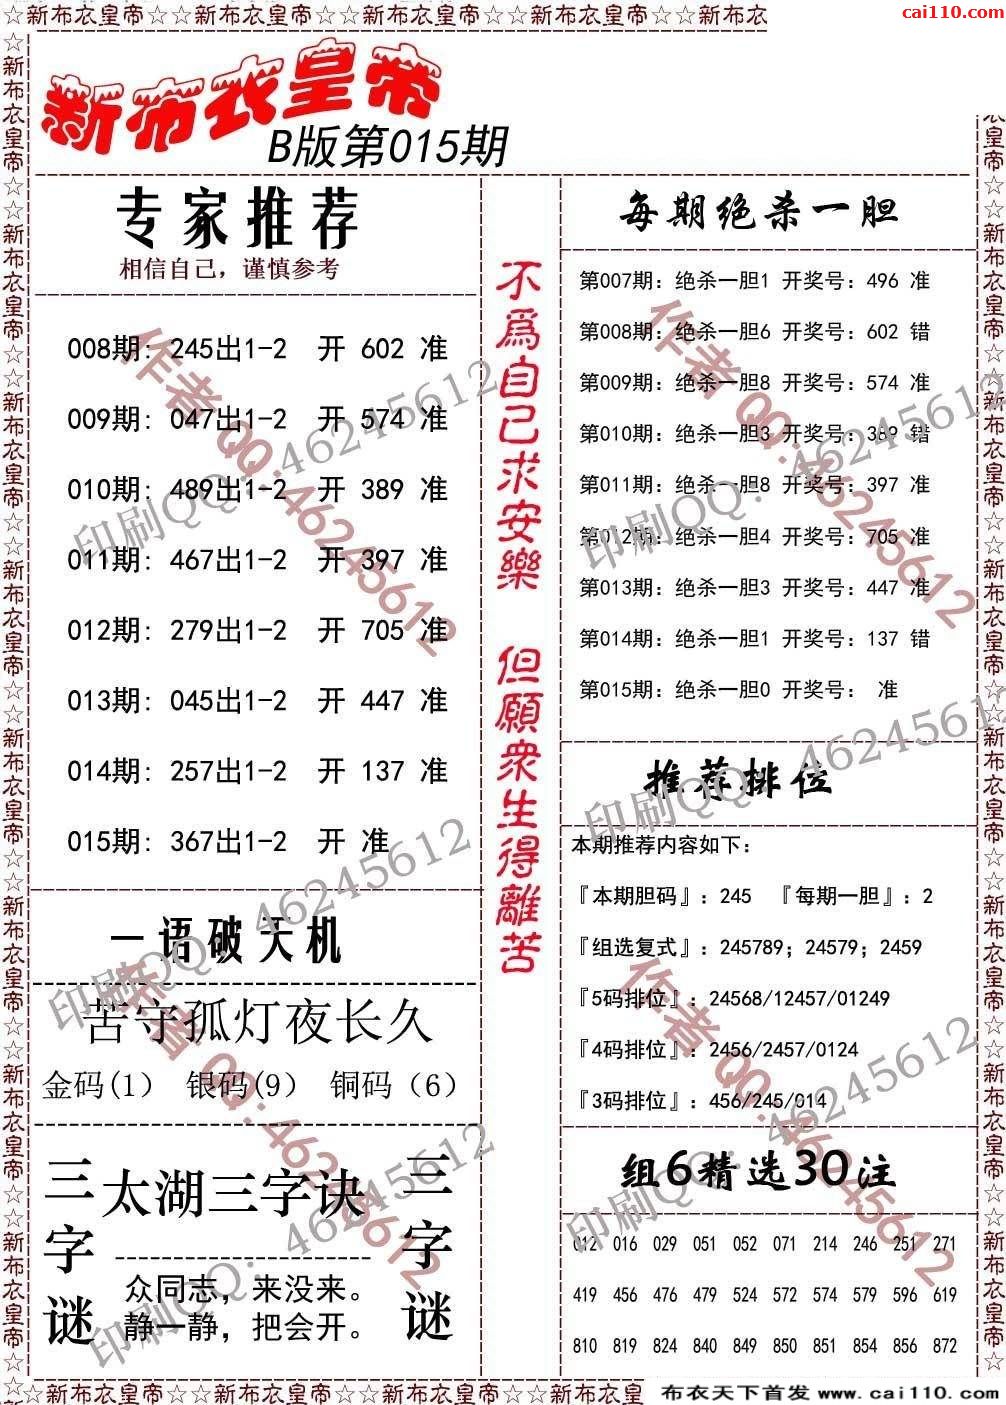 ☆新布衣皇帝☆新布衣皇帝☆新布衣皇帝☆新布衣皇帝☆新布衣皇帝☆新布衣皇帝☆新布衣
cai110.com
新布衣皇帝
B版第015期
专家推荐
相信自己，谨慎参考
008期：245出1-2 开 602 准
009期：047出1-2 开 574 准
010期：489出1-2 开 389 准
011期：467出1-2 开 397 准
012期：279出1-2 开 705 准
013期：045出1-2 开 447 准
014期：257出1-2 开 137 准
015期：367出1-2 开 准
一语破天机
苦守孤灯夜长久
金码(1) 银码(9) 铜码（6）
三字谜
太湖三字诀
众同志，来没来。
静一静，把会开。
三字谜
不為自己求安樂 但願衆生得離苦
每期绝杀一胆
第007期：绝杀一胆1 开奖号：496 准
第008期：绝杀一胆6 开奖号：602 错
第009期：绝杀一胆8 开奖号：574 准
第010期：绝杀一胆3 开奖号：389 错
第011期：绝杀一胆8 开奖号：397 准
第012期：绝杀一胆4 开奖号：705 准
第013期：绝杀一胆3 开奖号：447 准
第014期：绝杀一胆1 开奖号：137 错
第015期：绝杀一胆0 开奖号： 准
推荐排位
本期推荐内容如下：
『本期胆码』：245 『每期一胆』：2
『组选复式』：245789；24579；2459
『5码排位』：24568/12457/01249
『4码排位』：2456/2457/0124
『3码排位』：456/245/014
组6精选30注
012 016 029 051 052 071 214 246 251 271
419 456 476 479 524 572 574 579 596 619
810 819 824 840 849 850 851 854 856 872
作者QQ:46245612
印刷QQ：46245612
作者QQ:46245612
印刷QQ：46245612
印刷QQ：46245612
印刷QQ：46245612
作者QQ:46245612
印刷QQ：46245612
作者QQ:46245612
印刷QQ：46245612
☆新布衣皇帝☆新布衣皇帝☆新布衣皇帝☆新布衣皇帝☆新布衣皇
布衣天下首发www.cai110.com